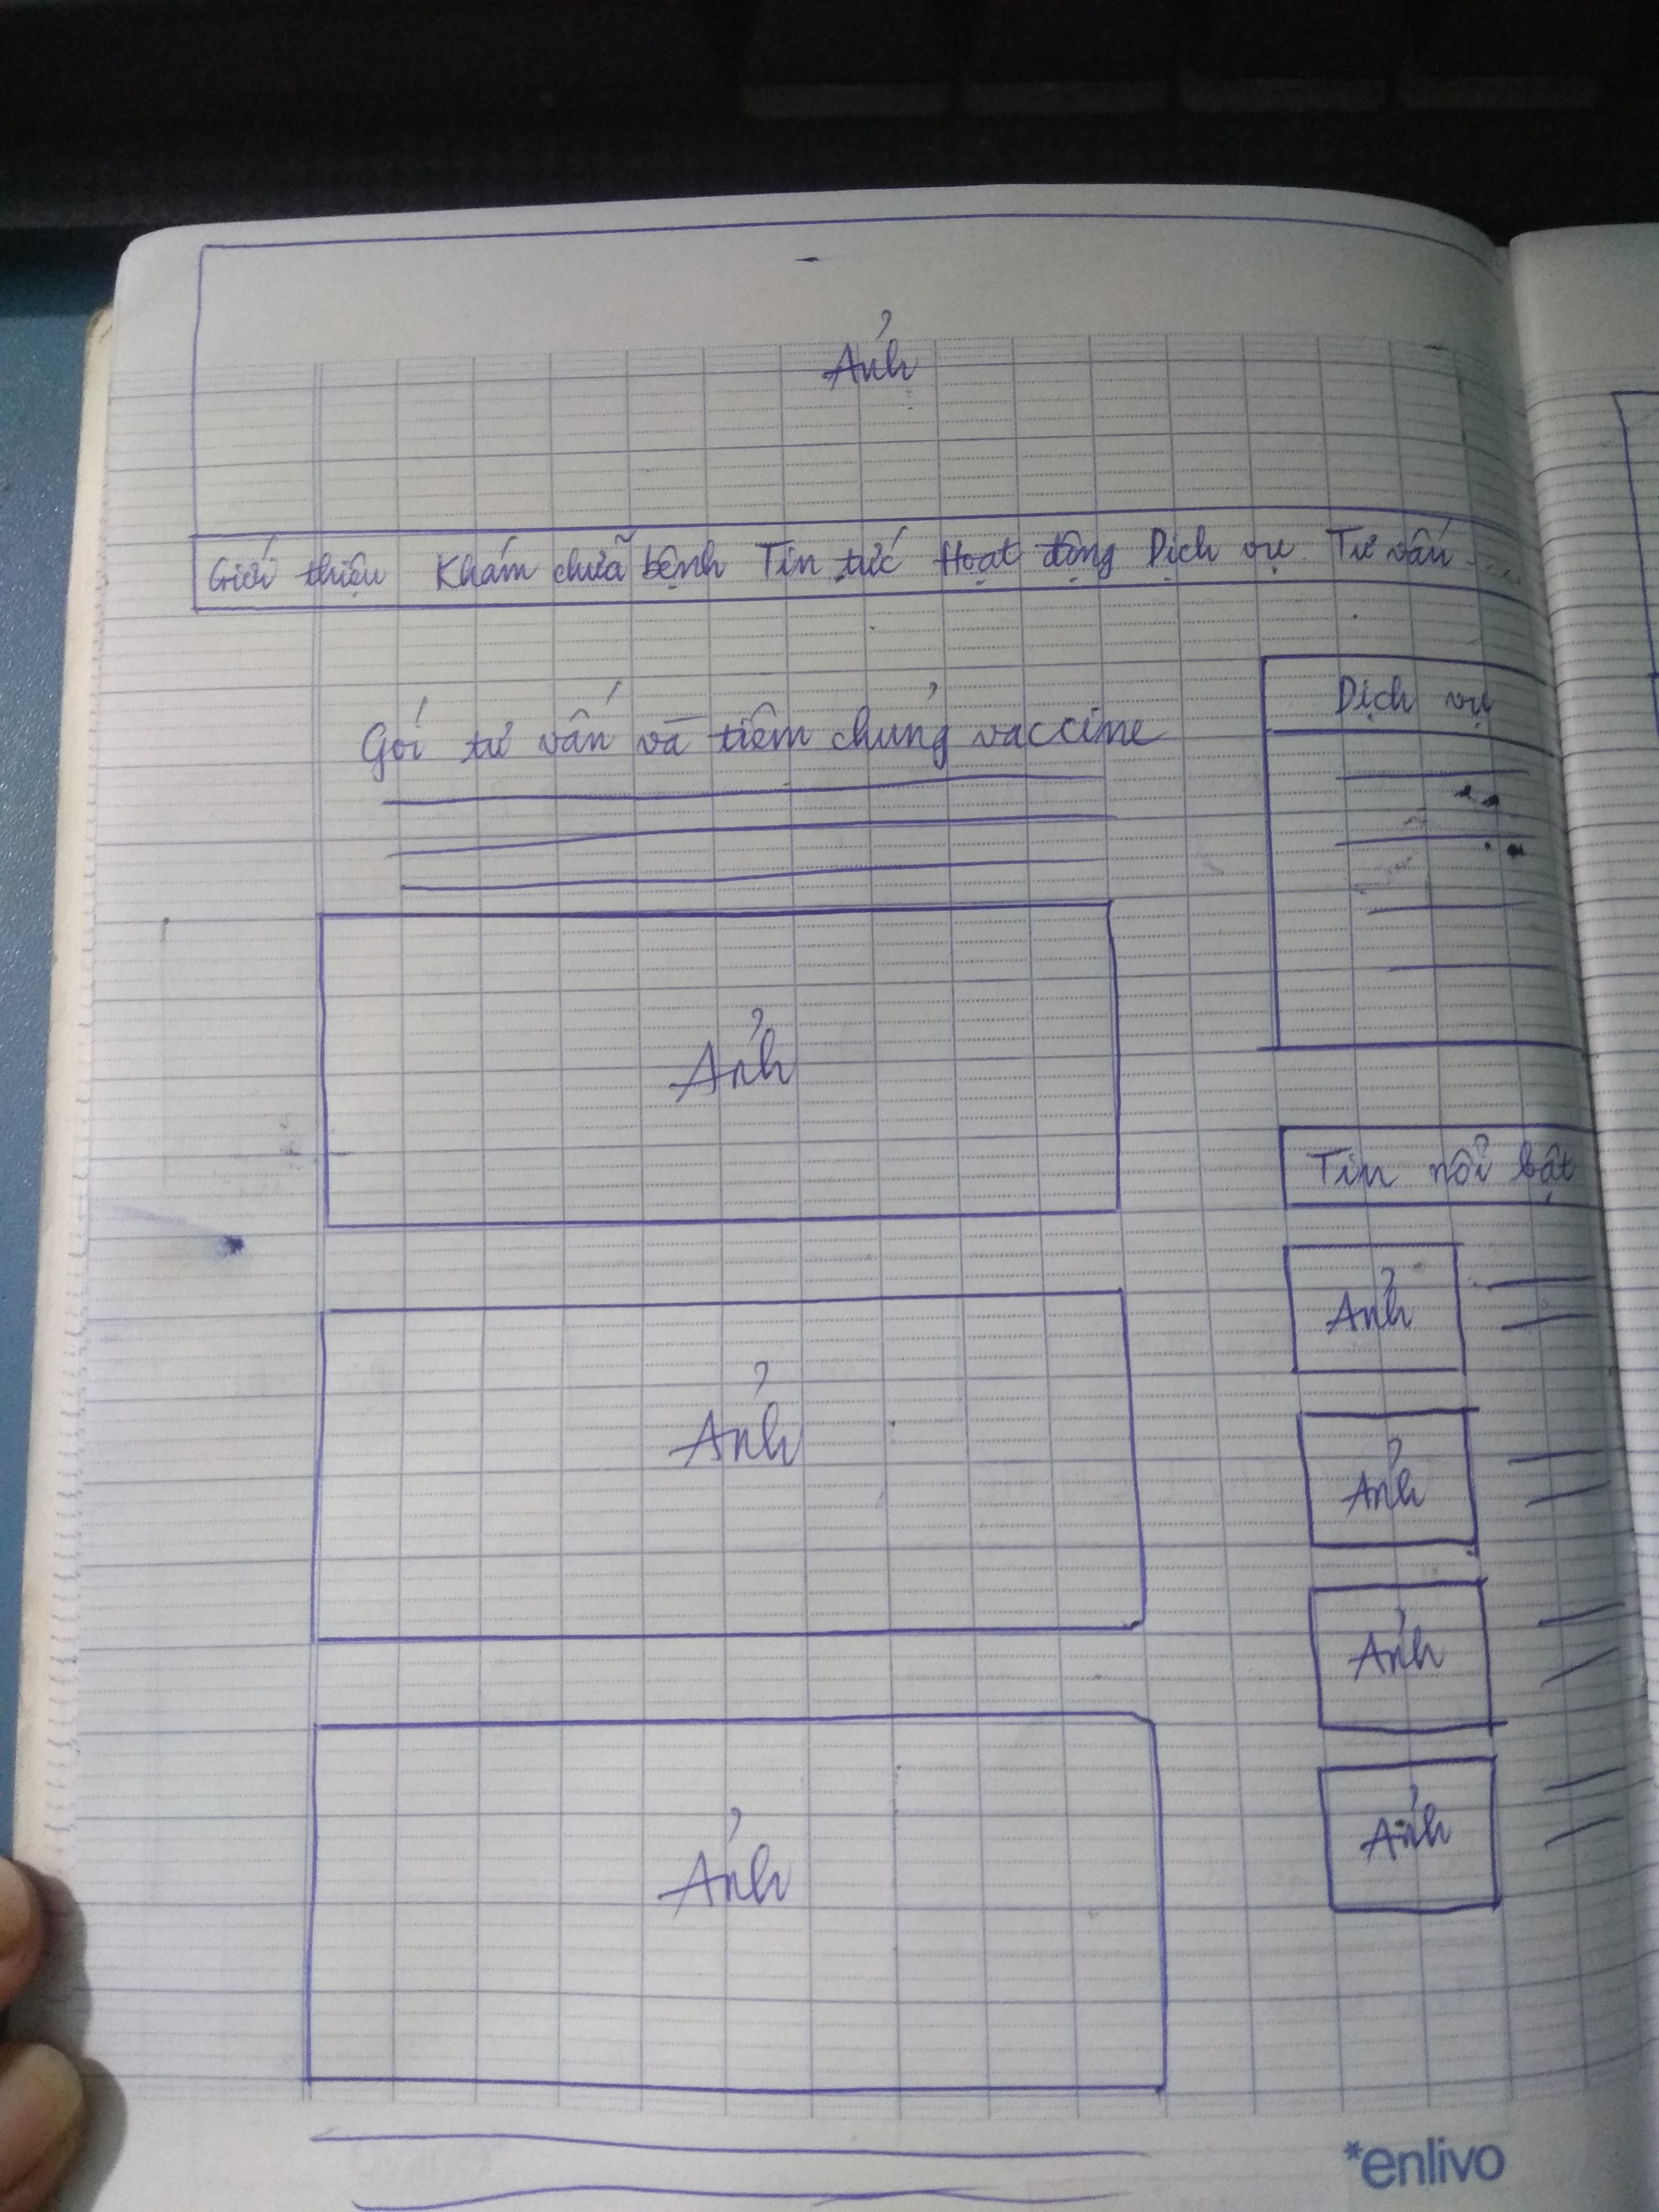 Ảnh
Giới thiệu Khám chữa bệnh Tin tức Hoạt động Dịch vụ Tư vấn ....
Gói tư vấn và tiêm chủng vaccine
Dịch vụ
Ảnh
Tin nổi bật
Ảnh
Ảnh
Ảnh
Ảnh
Ảnh
Ảnh
*enlivo